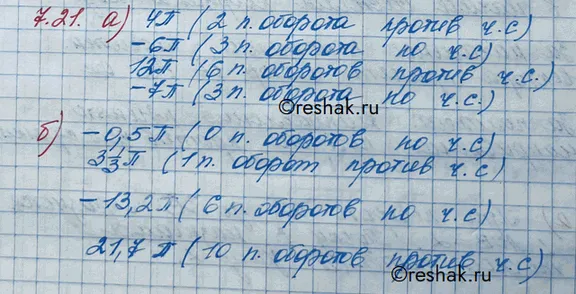 7.21. а) 4π (2 п. оборота против ч.с)
-6π (3 п. оборота по ч.с)
12π (6 п. оборотов против ч.с.)
-7π (3 п. оборота по ч.с)
reshak.ru
б) -0,5π (0 п. оборотов по ч.с)
3 1/3 π (1 п. оборот против ч.с)
-13,2π (6 п. оборотов по ч.с)
21,7π (10 п. оборотов против ч.с)
reshak.ru